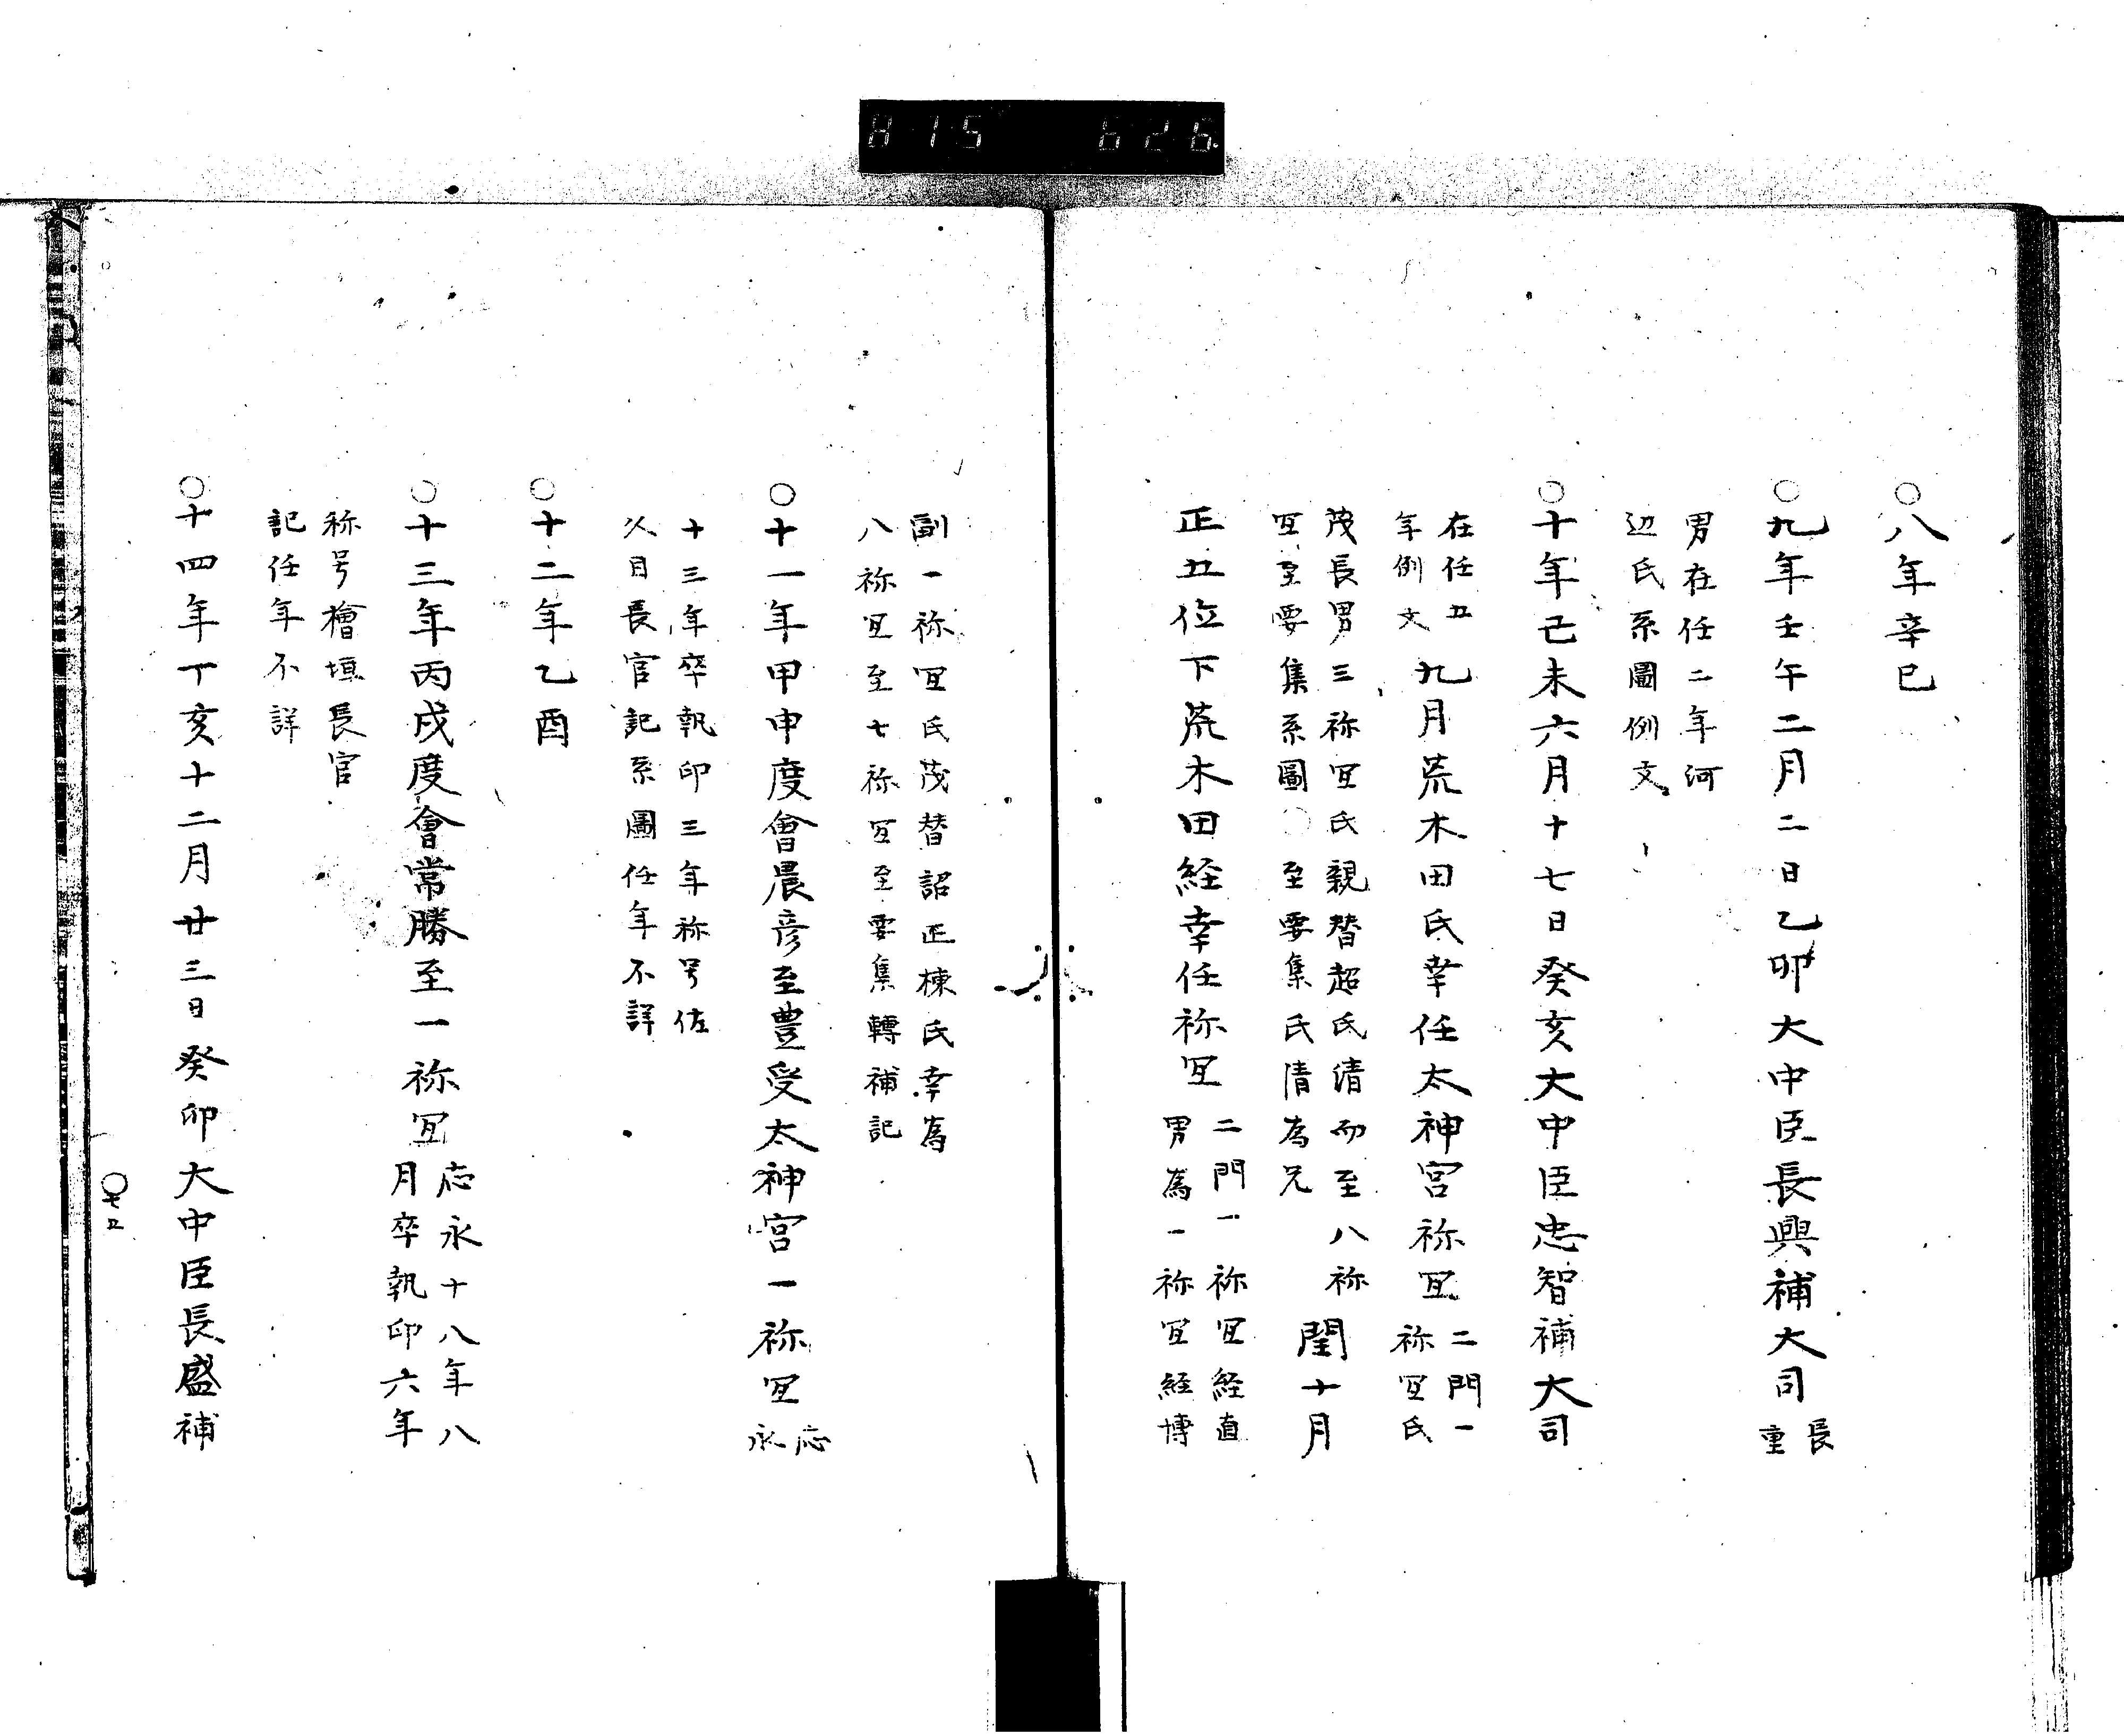 815 626
○八年辛巳
○九年壬午二月二日乙卯大中臣長興補大司長重
男在任二年河
辺氏系圖例文
○十年己未六月十七日癸亥大中臣忠智補大司
在任五
年例文
九月荒木田氏幸任太神宮祢冝
二門一
祢冝氏
茂長男三祢冝氏親替超氏清而至八祢
冝至要集系圖○至要集氏清為兄
閏十月
正五位下荒木田経幸任祢冝
二門一祢冝経直
男為一祢冝経博
副一祢冝氏茂替詔正棟氏幸為
八祢冝至七祢冝至要集轉補記
○十一年甲申度會晨彦至豊受太神宮一祢冝
応
永
十三年卒執印三年称号佐
久目長官記系圖任年不詳
○十二年乙酉
○十三年丙戌度會常勝至一祢冝
応永十八年八
月卒執印六年
称号檜垣長官
記任年不詳
○十四年丁亥十二月廿三日癸卯大中臣長盛補